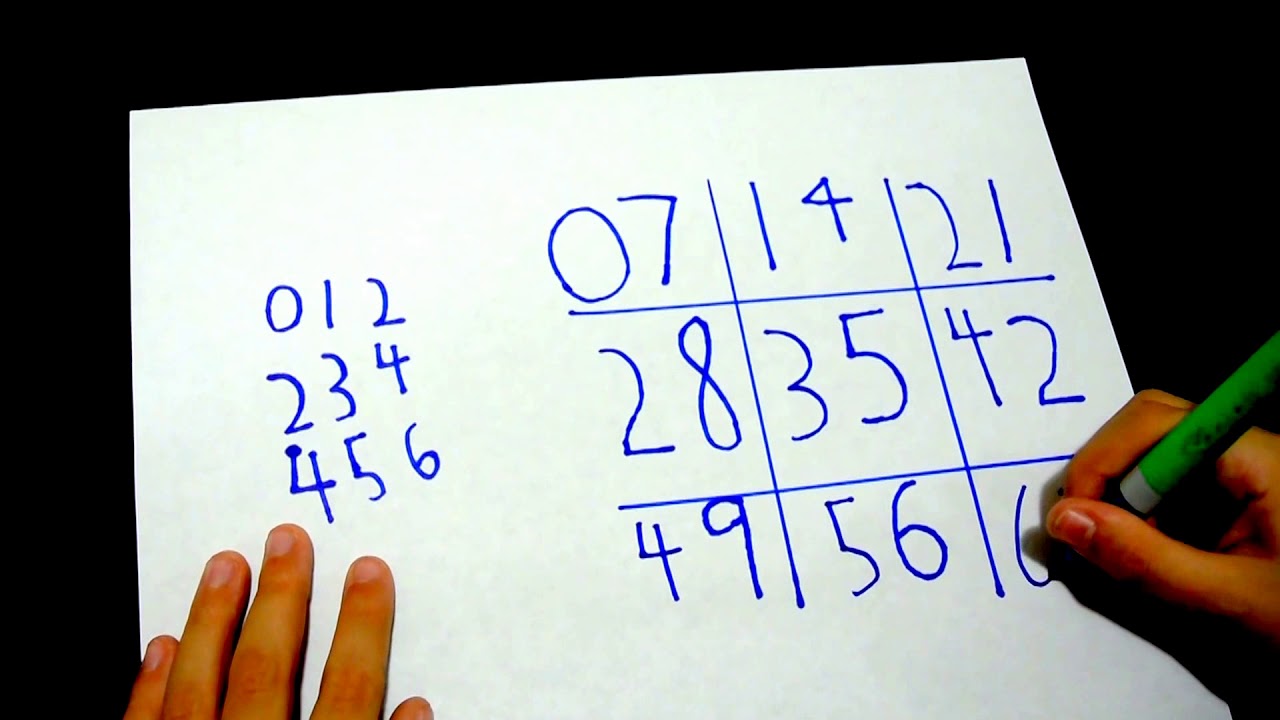 0 1 2
2 3 4
4 5 6
07 14 21
28 35 42
49 56 6